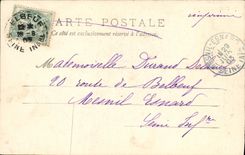 CARTE POSTALE
Ce côté est exclusivement réservé à l'adresse.
ELBEUF
SEINE INF
Mademoiselle Durand
20 route de Belbeuf
Mesnil Esnard
Seine Infre